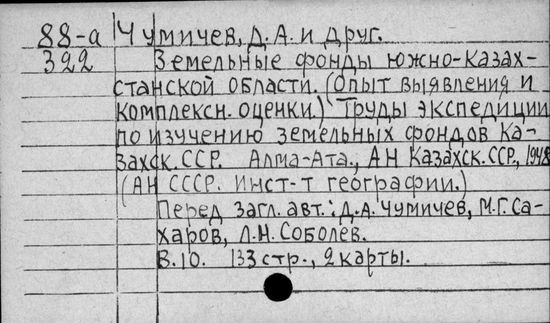 88-а Чумичев, Д. А. и друг.
322 Земельные фонды южно-казах-
станской области. (опыт выявления и
комплексн. оценки.) Труды экспедиции
по изучению земельных фондов Ка-
захск. ССР. Алма-Ата., АН Казахск. ССР., 1948
(АН СССР. Инст-т географии.)
Перед загл. авт.: Д.А. Чумичев, М.Г. Са-
харов, Л.Н. Соболев.
В. 10. 133 стр., 2 карты.